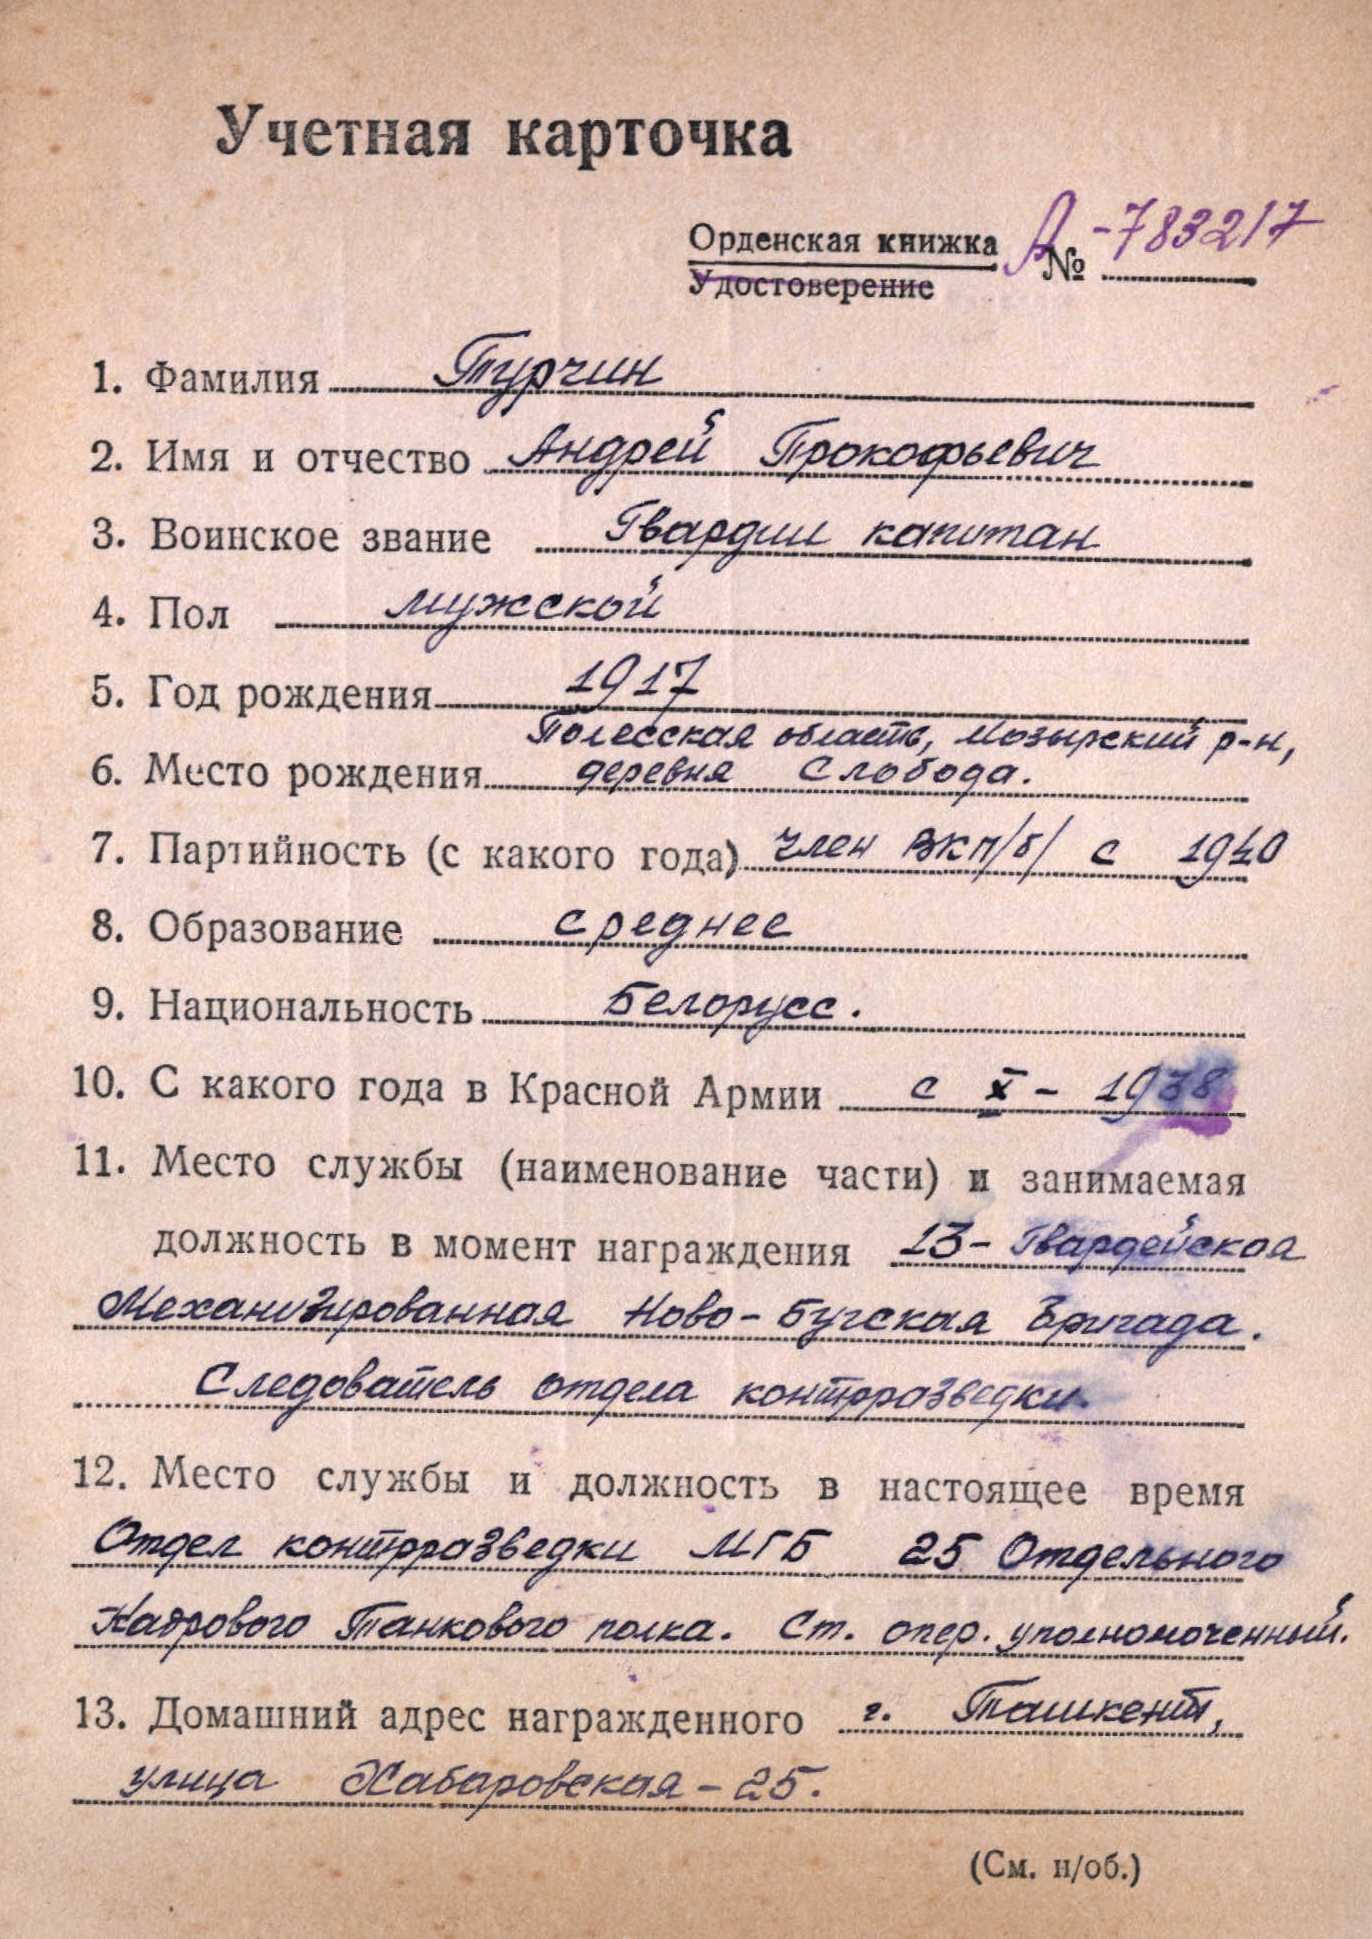 Учетная карточка
Орденская книжка А № -783217
Удостоверение
1. Фамилия Турчин
2. Имя и отчество Андрей Прокофьевич
3. Воинское звание Гвардии капитан
4. Пол мужской
5. Год рождения 1917
Полесская область, Мозырский р-н,
6. Место рождения деревня Слобода.
7. Партийность (с какого года) член ВКП/б/ с 1940
8. Образование среднее
9. Национальность Белорусс.
10. С какого года в Красной Армии с X - 1938
11. Место службы (наименование части) и занимаемая
должность в момент награждения 13-Гвардейская
Механизированная Ново-Бугская Бригада.
Следователь отдела контрразведки.
12. Место службы и должность в настоящее время
Отдел контрразведки МГБ 25 Отдельного
Кадрового Танкового полка. Ст. опер. уполномоченный.
13. Домашний адрес награжденного г. Ташкент,
улица Хабаровская-25.
(См. н/об.)